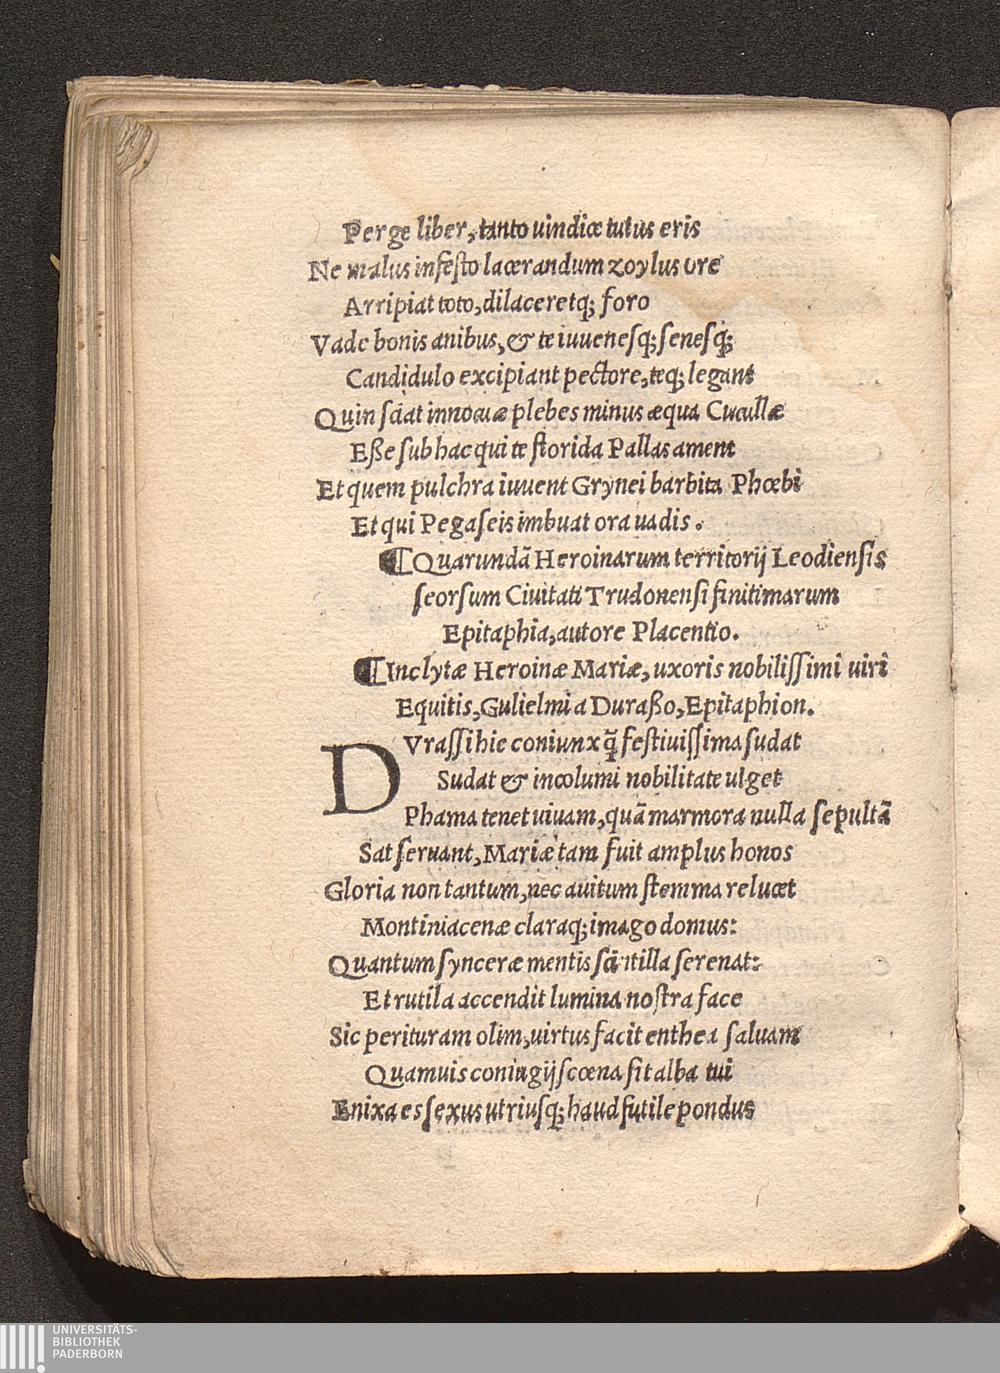 Perge liber, tanto uindice tutus eris
Ne malus infesto lacerandum zoylus ore
Arripiat toto, dilaceretq; foro
Vade bonis auibus, & te iuuenesq; senesq;
Candidulo excipiant pectore, teq; legant
Quin sciat innocuæ plebes minus æqua Cucullæ
Eße sub hac qui te florida Pallas ament
Et quem pulchra iuuent Grynei barbita Phœbi
Et qui Pegaseis imbuat ora uadis.
¶ Quarundã Heroinarum territorij Leodiensis
seorsum Ciuitati Trudonensi finitimarum
Epitaphia, autore Placentio.
¶ Inclytæ Heroinæ Mariæ, uxoris nobilissimi uiri
Equitis, Gulielmi a Duraßo, Epitaphion.
DVrassi hic coniunx q̃ festiuissima sudat
Sudat & incolumi nobilitate ulget
Phama tenet uiuam, quã marmora nulla sepultã
Sat seruant, Mariæ tam fuit amplus honos
Gloria non tantum, nec auitum stemma relucet
Montiniacenæ claraq; imago domus:
Quantum synceræ mentis scintilla serenat:
Et rutila accendit lumina nostra face
Sic perituram olim, uirtus facit enthea saluam
Quamuis coniugij scœna sit alba tui
Enixa es sexus utriusq; haud futile pondus
UNIVERSITÄTS-
BIBLIOTHEK
PADERBORN